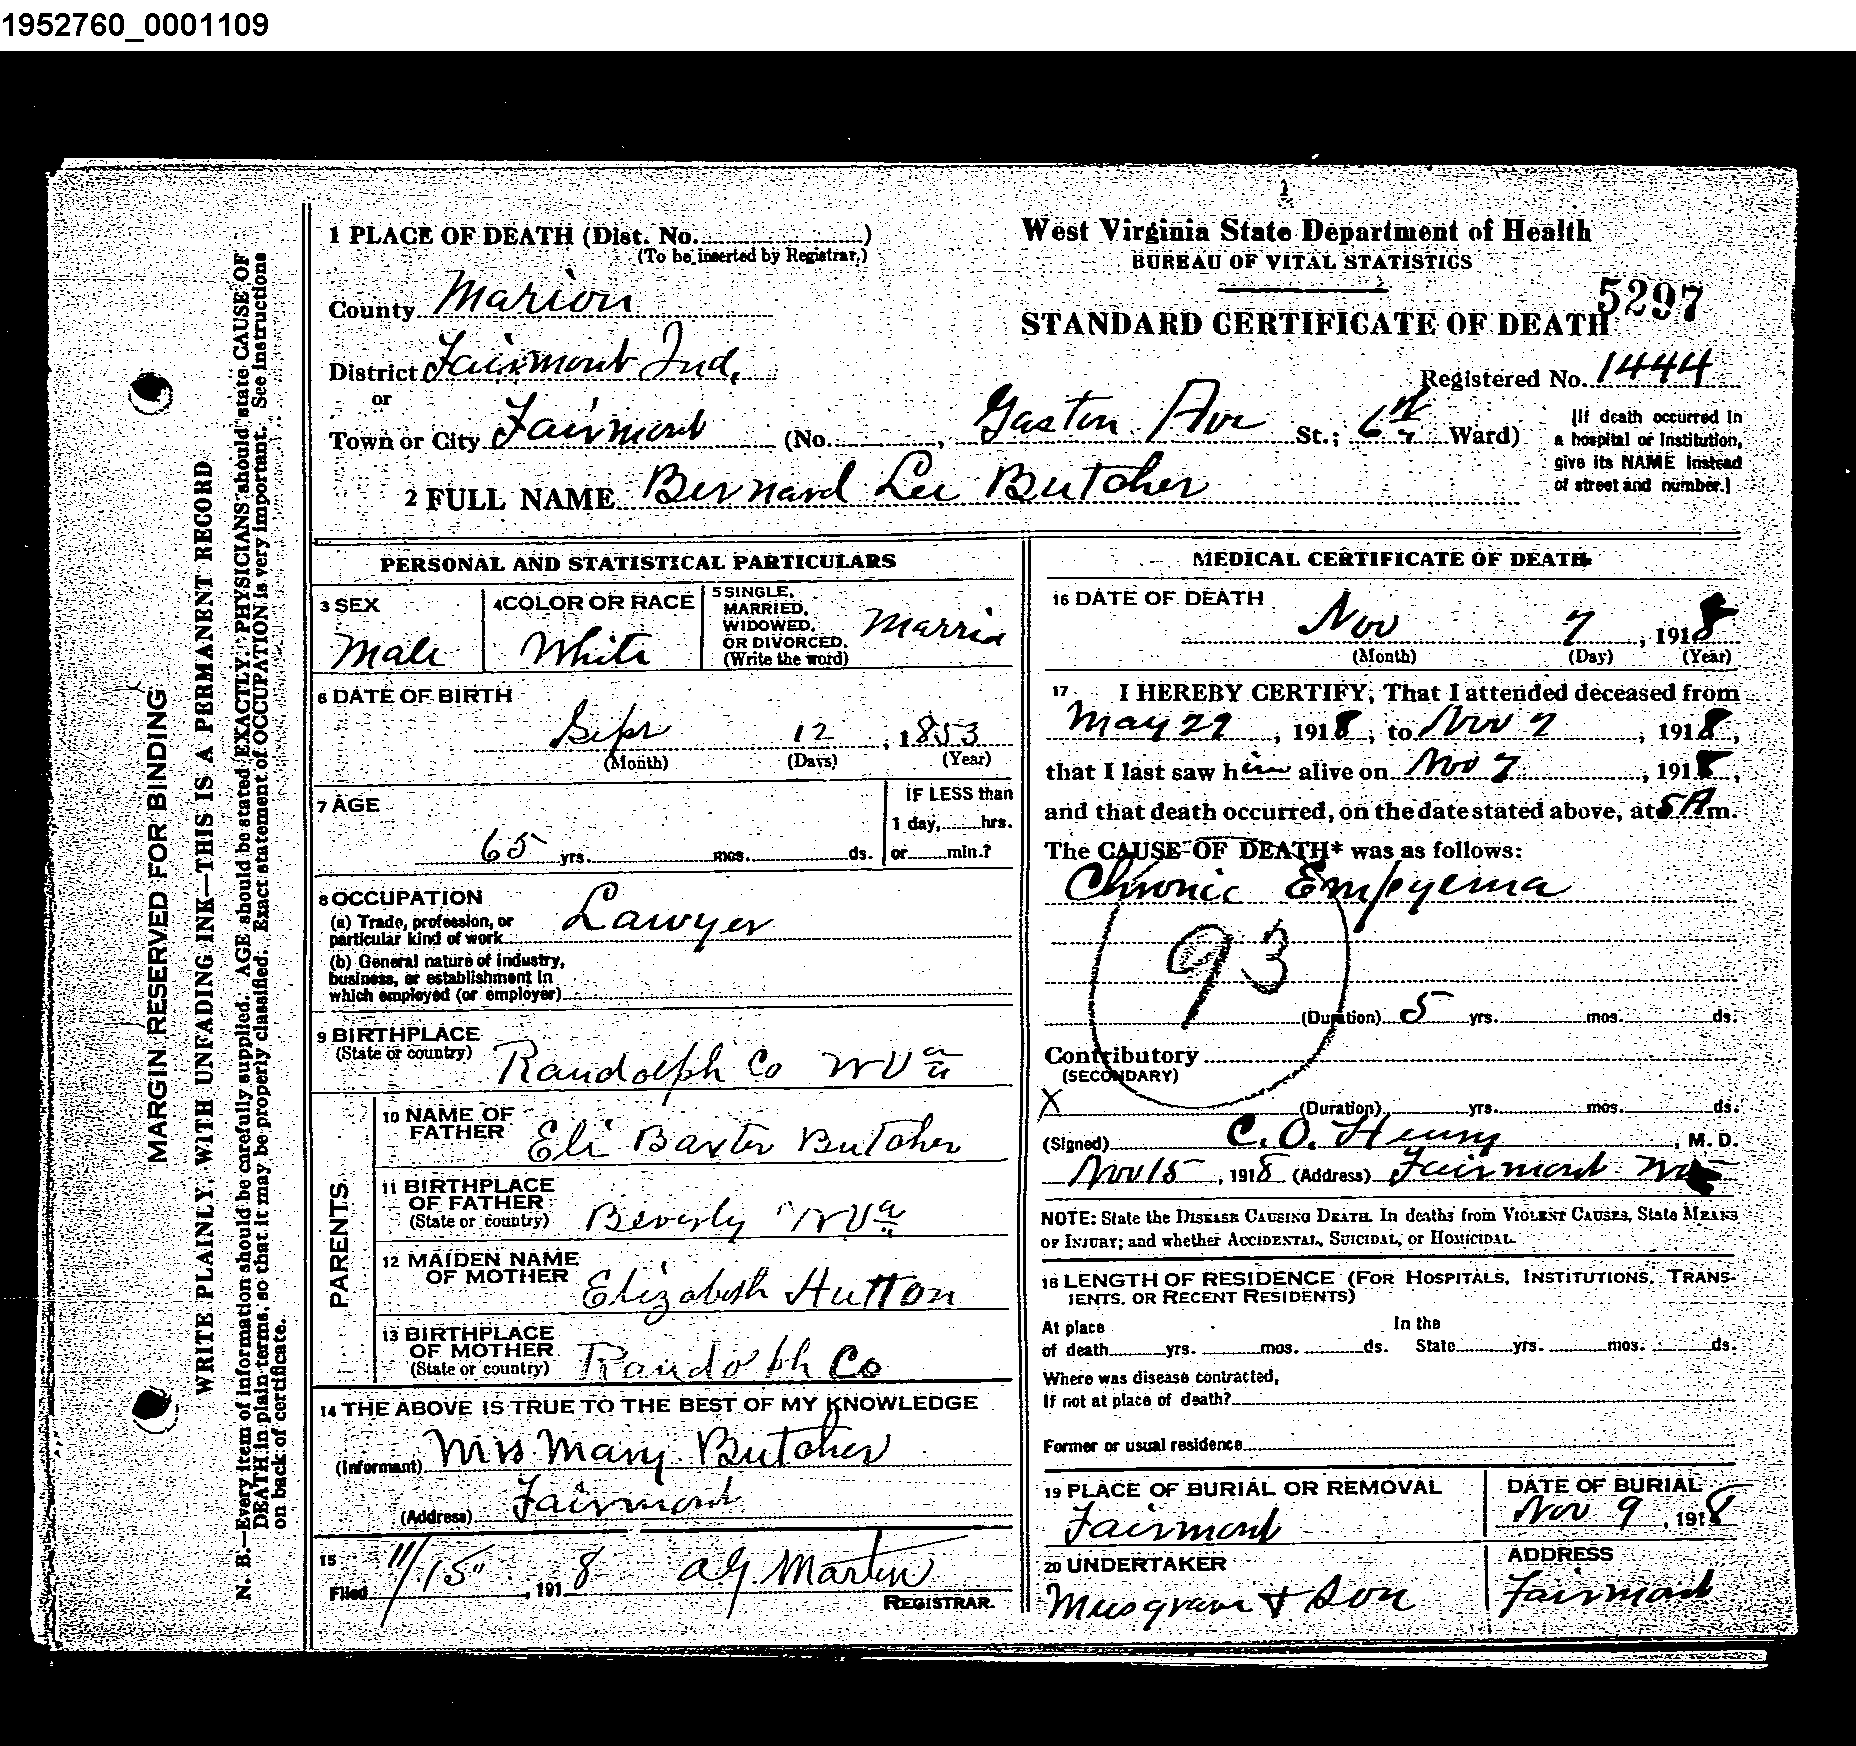 1952760_0001109
1 PLACE OF DEATH (Dist. No.                )
(To be inserted by Registrar.)
County Marion
District Fairmont Ind.
or
Town or City Fairmont (No.          , Gaston Ave St.; 6th Ward)
West Virginia State Department of Health
BUREAU OF VITAL STATISTICS
5297
STANDARD CERTIFICATE OF DEATH
Registered No. 1444
[If death occurred in
a hospital or institution,
give its NAME instead
of street and number.]
2 FULL NAME Bernard Lee Butcher
PERSONAL AND STATISTICAL PARTICULARS
3 SEX
Male
4 COLOR OR RACE
White
5 SINGLE,
MARRIED,
WIDOWED,
OR DIVORCED.
(Write the word)
Married
6 DATE OF BIRTH
Sept 12, 1853
(Month) (Days) (Year)
7 AGE
65 yrs. mos. ds.
IF LESS than
1 day, hrs.
or min.?
8 OCCUPATION
(a) Trade, profession, or
particular kind of work Lawyer
(b) General nature of industry,
business, or establishment in
which employed (or employer)
9 BIRTHPLACE
(State or country) Randolph Co W Va
PARENTS
10 NAME OF
FATHER Eli Baxter Butcher
11 BIRTHPLACE
OF FATHER
(State or country) Beverly W Va
12 MAIDEN NAME
OF MOTHER Elizabeth Hutton
13 BIRTHPLACE
OF MOTHER
(State or country) Randolph Co
14 THE ABOVE IS TRUE TO THE BEST OF MY KNOWLEDGE
(Informant) Mrs Mary Butcher
(Address) Fairmont
15
Filed 11/15, 1918 A.G. Martin
REGISTRAR.
MEDICAL CERTIFICATE OF DEATH
16 DATE OF DEATH
Nov 7, 1918
(Month) (Day) (Year)
17 I HEREBY CERTIFY, That I attended deceased from
May 29, 1918, to Nov 7, 1918,
that I last saw him alive on Nov 7, 1918,
and that death occurred, on the date stated above, at 5 A m.
The CAUSE OF DEATH* was as follows:
Chronic Empyema
93
(Duration) 5 yrs. mos. ds.
Contributory
(SECONDARY)
X
(Duration) yrs. mos. ds.
(Signed) C. O. Henry, M. D.
Nov 15, 1918 (Address) Fairmont
NOTE: State the DISEASE CAUSING DEATH. In deaths from VIOLENT CAUSES, State MEANS
OF INJURY; and whether ACCIDENTAL, SUICIDAL, or HOMICIDAL.
18 LENGTH OF RESIDENCE (FOR HOSPITALS, INSTITUTIONS, TRANS-
IENTS, OR RECENT RESIDENTS)
At place In the
of death yrs. mos. ds. State yrs. mos. ds.
Where was disease contracted,
If not at place of death?
Former or usual residence
19 PLACE OF BURIAL OR REMOVAL
Fairmont
DATE OF BURIAL
Nov 9, 1918
20 UNDERTAKER
Musgrave & Son
ADDRESS
Fairmont
MARGIN RESERVED FOR BINDING
WRITE PLAINLY, WITH UNFADING INK—THIS IS A PERMANENT RECORD
N. B.—Every item of information should be carefully supplied. AGE should be stated EXACTLY. PHYSICIANS should state CAUSE OF
DEATH in plain terms, so that it may be properly classified. Exact statement of OCCUPATION is very important. See instructions
on back of certificate.